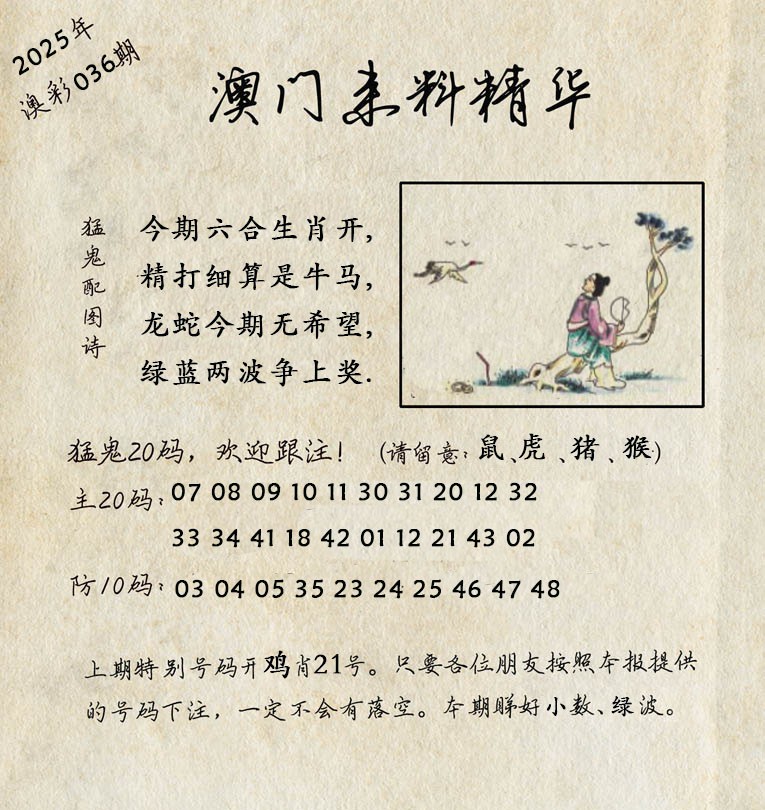 2025年
澳彩036期
澳门来料精华
猛鬼配图诗
今期六合生肖开,
精打细算是牛马,
龙蛇今期无希望,
绿蓝两波争上奖.
猛鬼20码，欢迎跟注！（请留意：鼠、虎、猪、猴）
主20码：07 08 09 10 11 30 31 20 12 32
33 34 41 18 42 01 12 21 43 02
防10码：03 04 05 35 23 24 25 46 47 48
上期特别号码开鸡肖21号。只要各位朋友按照本报提供
的号码下注，一定不会有落空。本期睇好小数、绿波。